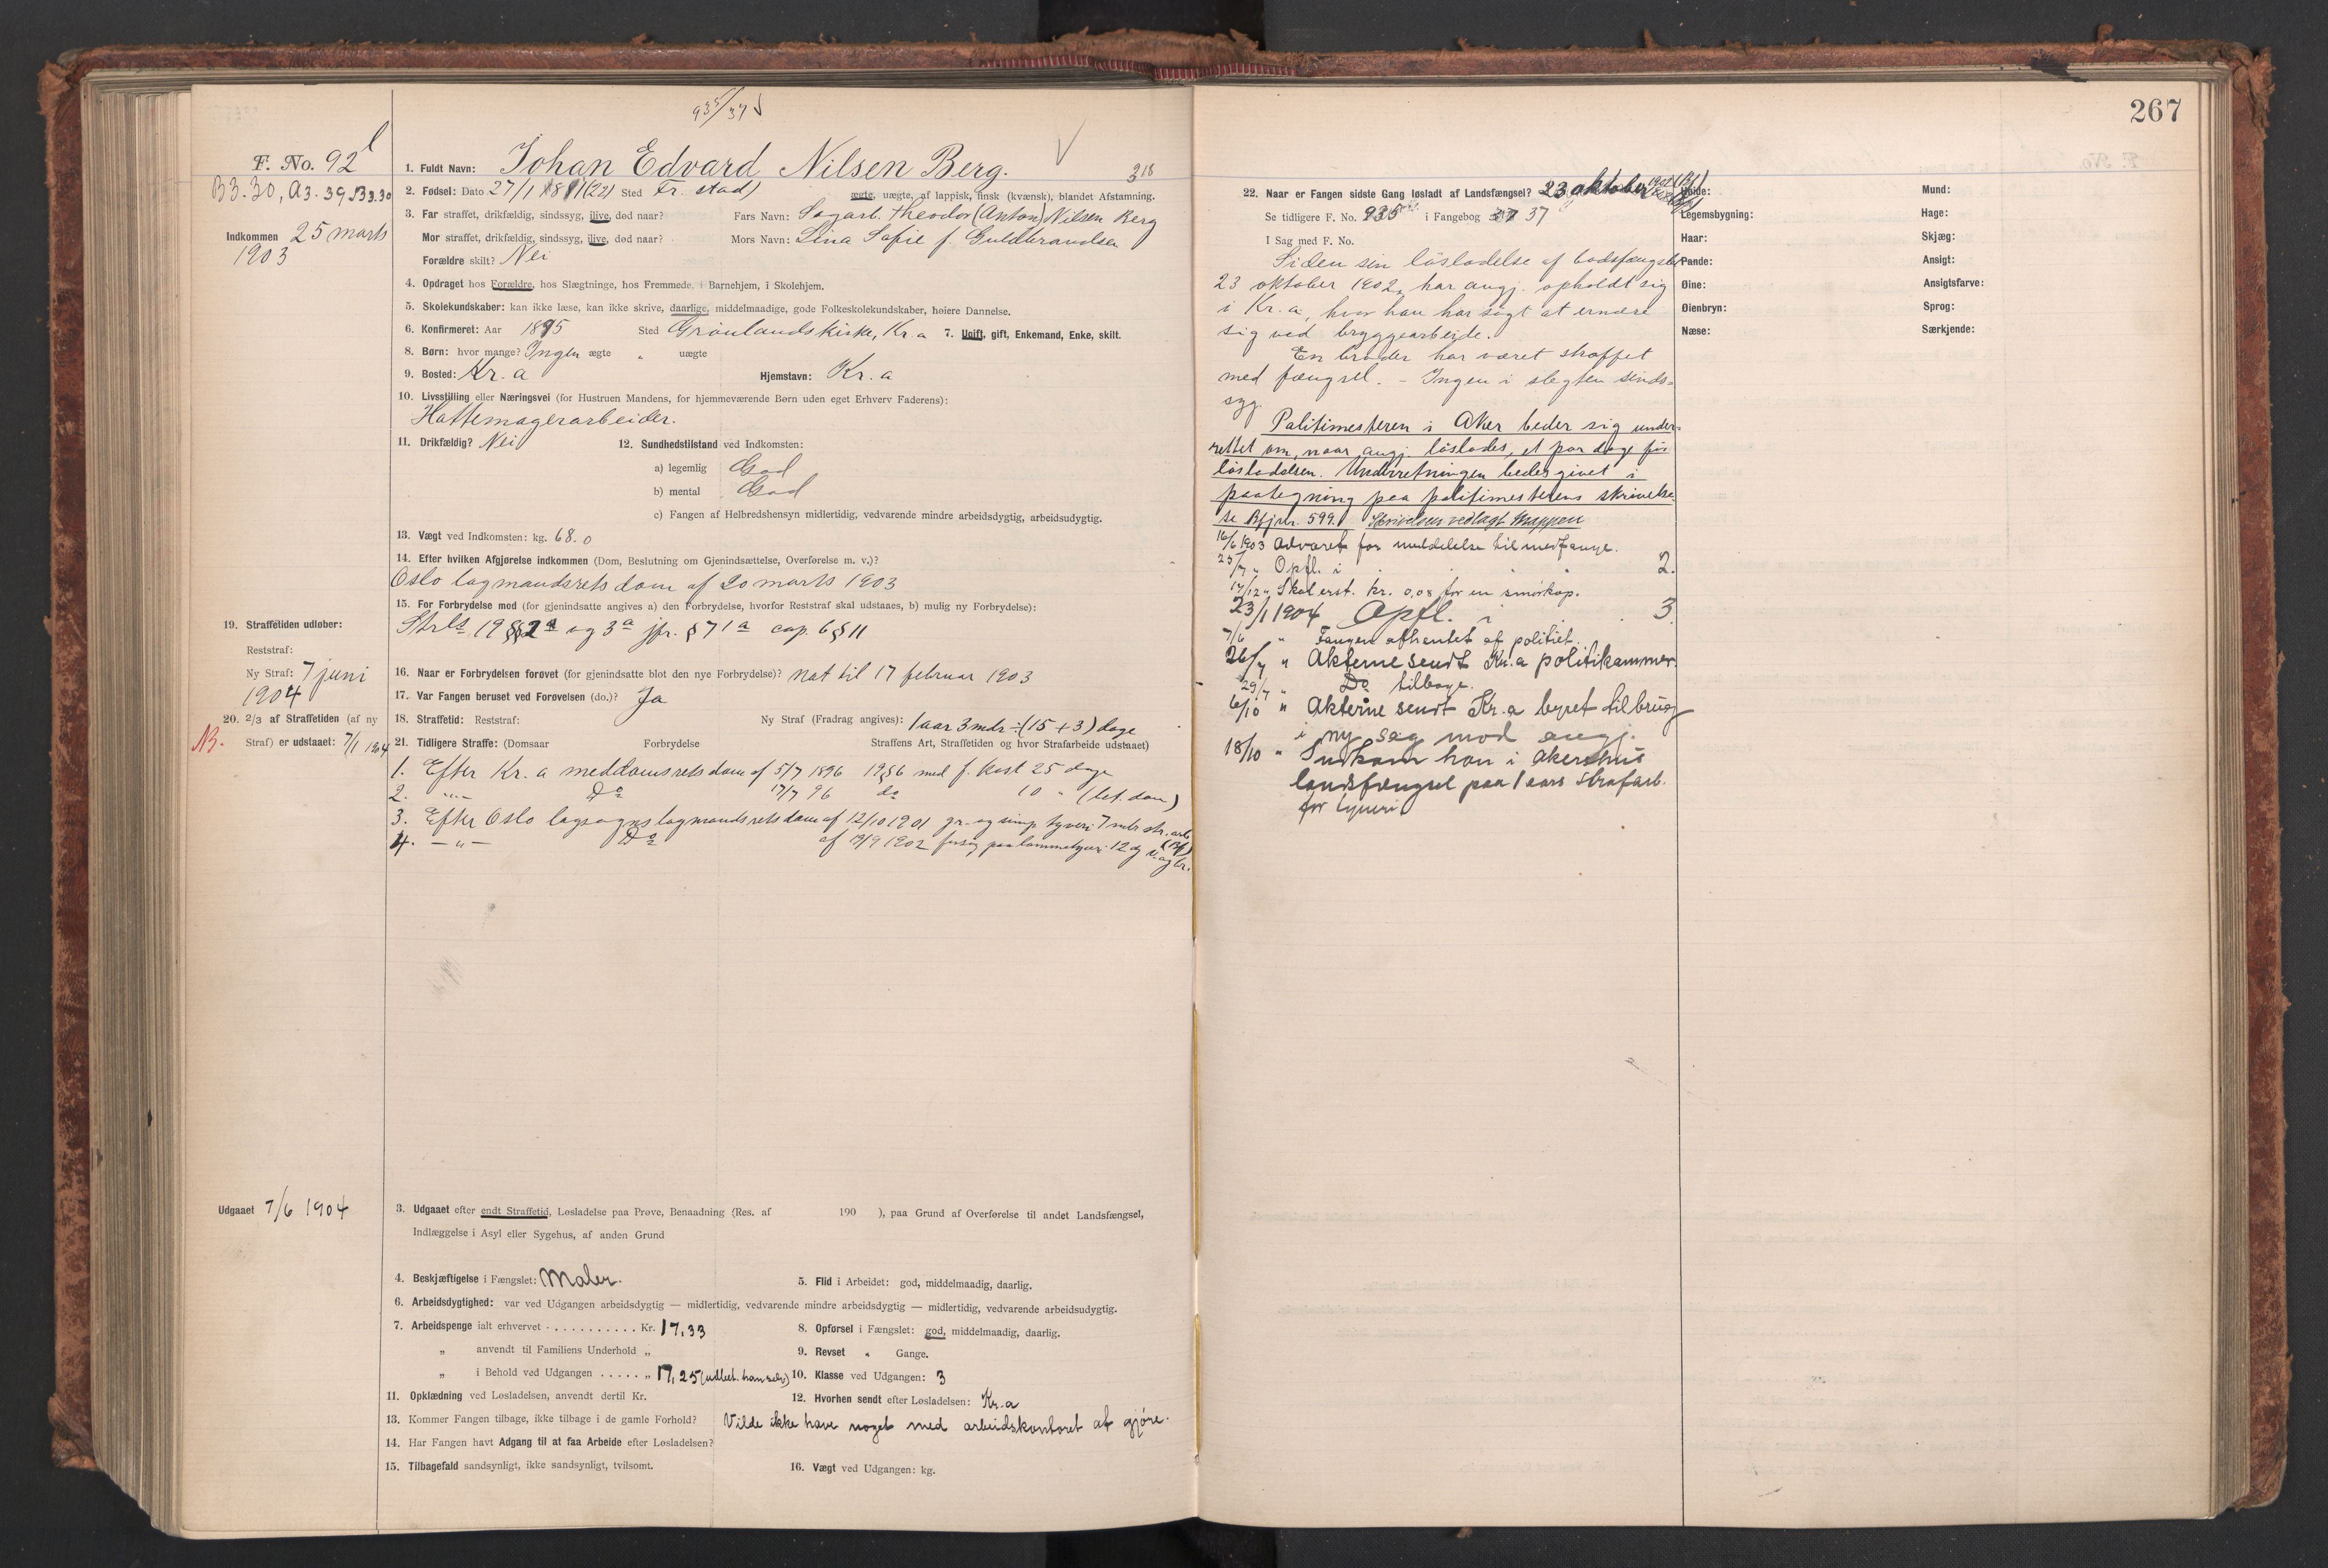 935/37
F. No. 92
1. Fuldt Navn: Johan Edvard Nilsen Berg.
318
B3.30, A3.39, B3.30
2. Fødsel: Dato 27/1 1881 (22) Sted Fr. stad
ægte, uægte, af lappisk, finsk (kvænsk), blandet Afstamning.
Indkommen 25 marts
1903
3. Far straffet, drikfældig, sindssyg, ilive, død naar? Fars Navn: Sagarb. Theodor (Anton) Nilsen Berg
Mor straffet, drikfældig, sindssyg, ilive, død naar? Mors Navn: Lina Sofie f. Guldbrandsen
Forældre skilt? Nei
4. Opdraget hos Forældre, hos Slægtninge, hos Fremmede, i Barnehjem, i Skolehjem.
5. Skolekundskaber: kan ikke læse, kan ikke skrive, daarlige, middelmaadige, gode Folkeskolekundskaber, høiere Dannelse.
6. Konfirmeret: Aar 1895 Sted Grønlands kirke, Kr.a 7. Ugift, gift, Enkemand, Enke, skilt.
8. Børn: hvor mange? Ingen ægte " uægte
9. Bosted: Kr. a Hjemstavn: Kr. a
10. Livsstilling eller Næringsvei (for Hustruen Mandens, for hjemmeværende Børn uden eget Erhverv Faderens):
Hattemagerarbeider.
11. Drikfældig? Nei 12. Sundhedstilstand ved Indkomsten:
a) legemlig God
b) mental God
c) Fangen af Helbredshensyn midlertidig, vedvarende mindre arbeidsdygtig, arbeidsudygtig.
13. Vægt ved Indkomsten: kg. 68.0
14. Efter hvilken Afgjørelse indkommen (Dom, Beslutning om Gjenindsættelse, Overførelse m. v.)?
Oslo lagmandsrets dom af 20 marts 1903
15. For Forbrydelse med (for gjenindsatte angives a) den Forbrydelse, hvorfor Reststraf skal udstaaes, b) mulig ny Forbrydelse):
Strls. 19 §§ 2a og 3a jfr. § 7 1a cap. 6 § 11
19. Straffetiden udløber:
Reststraf:
Ny Straf: 7 juni
1904
16. Naar er Forbrydelsen forøvet (for gjenindsatte blot den nye Forbrydelse)? nat til 17 februar 1903
17. Var Fangen beruset ved Forøvelsen (do.)? Ja
20. 2/3 af Straffetiden (af ny
Straf) er udstaaet: 7/1 1904
NB.
18. Straffetid: Reststraf: Ny Straf (Fradrag angives): 1 aar 3 mdr ÷ (15 + 3) dage
21. Tidligere Straffe: (Domsaar Forbrydelse Straffens Art, Straffetiden og hvor Strafarbeide udstaaet)
1. Efter Kr. a meddomsrets dom af 5/7 1896 19 § 6 med f. kost 25 dage
2. -"- Do 17/7 96 do 10 " (bet. dom)
3. Efter Oslo lagsogns lagmandsrets dom af 12/10 1901 gr. og simp. tyveri 7 mdr str. arb. (Bf)
4. -"- Do af 19/9 1902 forsøg paa lommetyveri 12 dg v. og br.
Udgaaet 7/6 1904
3. Udgaaet efter endt Straffetid, Løsladelse paa Prøve, Benaadning (Res. af 190 ), paa Grund af Overførelse til andet Landsfængsel,
Indlæggelse i Asyl eller Sygehus, af anden Grund
4. Beskjæftigelse i Fængslet: Maler. 5. Flid i Arbeidet: god, middelmaadig, daarlig.
6. Arbeidsdygtighed: var ved Udgangen arbeidsdygtig — midlertidig, vedvarende mindre arbeidsdygtig — midlertidig, vedvarende arbeidsudygtig.
7. Arbeidspenge ialt erhvervet . . . . . . . . . . . Kr. 17,33 8. Opførsel i Fængslet: god, middelmaadig, daarlig.
" anvendt til Familiens Underhold " 9. Revset " Gange.
" i Behold ved Udgangen . . . . . " 17,25 (udbet. ham selv) 10. Klasse ved Udgangen: 3
11. Opklædning ved Løsladelsen, anvendt dertil Kr. 12. Hvorhen sendt efter Løsladelsen: Kr.a
13. Kommer Fangen tilbage, ikke tilbage i de gamle Forhold? Vilde ikke have noget med arbeidskontoret at gjøre.
14. Har Fangen havt Adgang til at faa Arbeide efter Løsladelsen?
15. Tilbagefald sandsynligt, ikke sandsynligt, tvilsomt. 16. Vægt ved Udgangen: kg.
267
22. Naar er Fangen sidste Gang løsladt af Landsfængsel? 23 oktober
Se tidligere F. No. 935 i Fangebog 37
I Sag med F. No.
Siden sin løsladelse af bodsfængslet
23 oktober 1902, har angj. opholdt sig
i Kr. a, hvor han har søgt at ernære
sig ved bryggearbeide.
En broder har været straffet
med fængsel. – Ingen i slegten sinds=
syg.
Politimesteren i Aker beder sig under=
rettet om, naar angj. løslades, et par dage før
løsladelsen. Underretningen bedes givet i
paategning paa politimesterens skrivelse.
Se Bfjnr. 599. Skrivelsen vedlagt Mappen
16/6 1903 Advaret for meddelelse til medfange.
23/7 " Opfl. i 2.
17/12 " Skal erst. kr. 0,08 for en smørkop.
23/1 1904 Opfl. i 3.
7/6 " Fangen afhentet af politiet.
26/7 " Akterne sendt Kr.a politikammer.
29/7 " Do tilbage.
6/10 " Akterne sendt Kr.a byret til brug
i ny sag mod angj.
18/10 " Indkom han i Akershus
landsfængsel paa 1 aars strafarb.
for tyveri
Høide:
Legemsbygning:
Haar:
Pande:
Øine:
Øienbryn:
Næse:
Mund:
Hage:
Skjæg:
Ansigt:
Ansigtsfarve:
Sprog:
Særkjende: